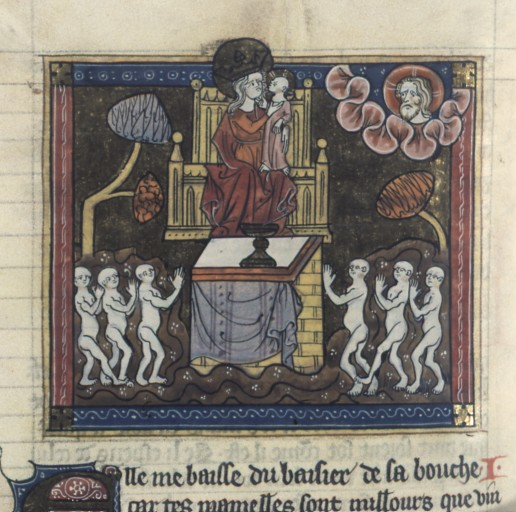 lle me baisse du baisier de sa bouche
car tes mamelles sont millours que vin